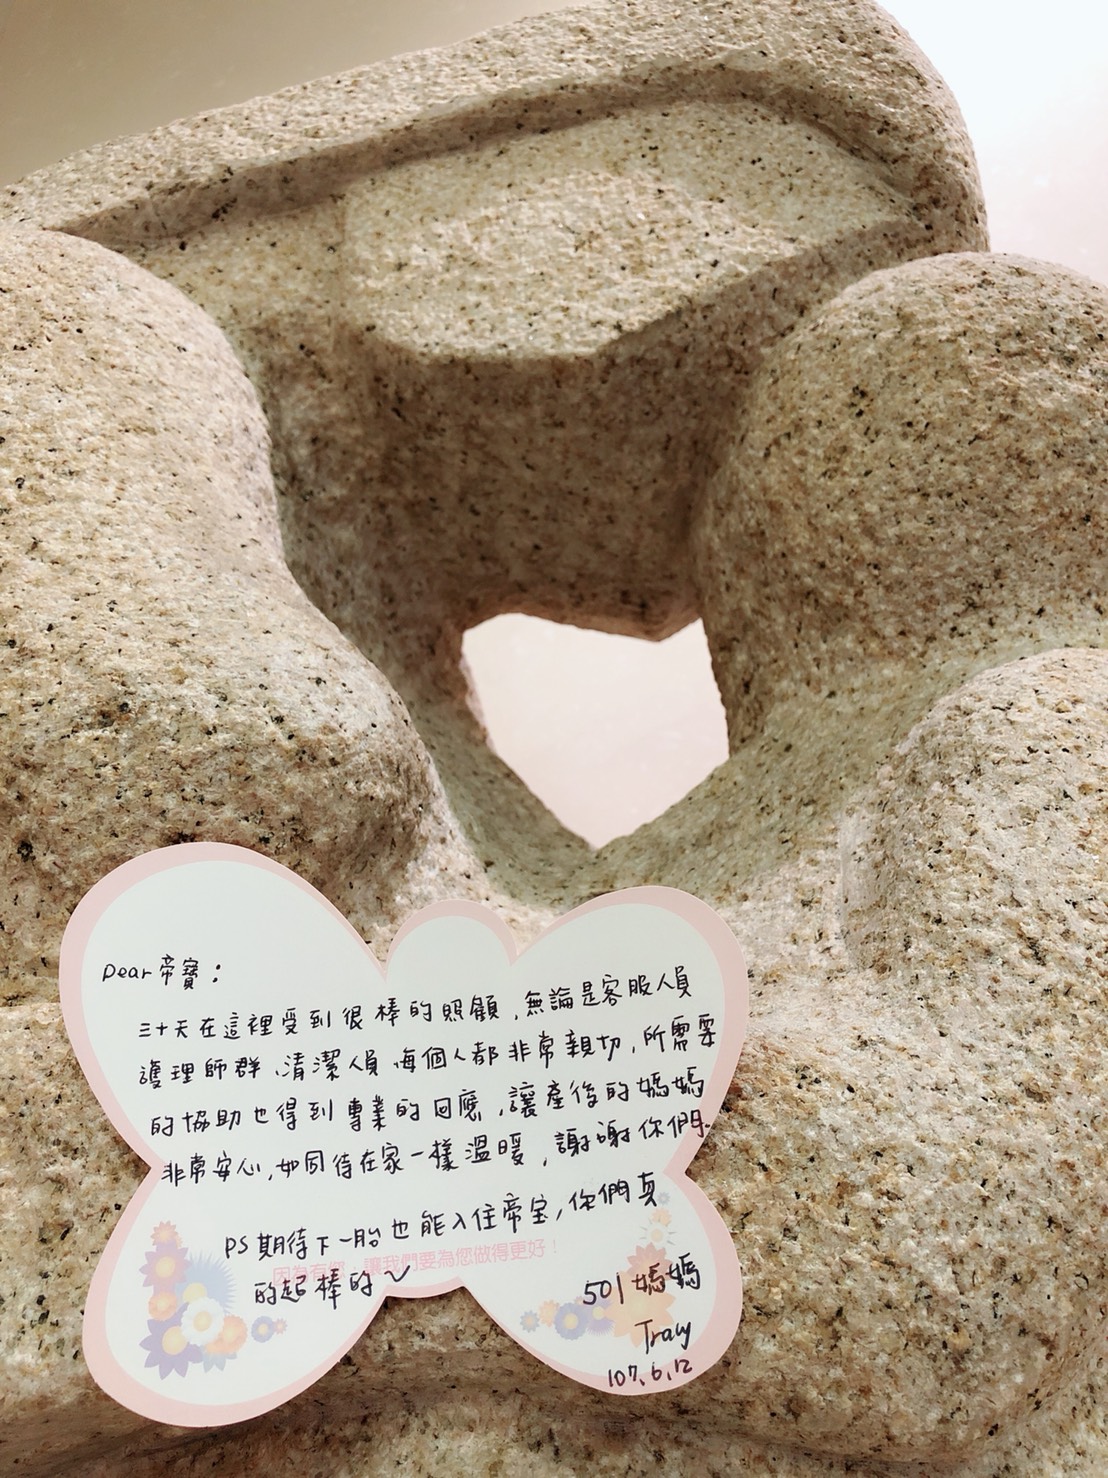 Dear帝寶：
三十天在這裡受到很棒的照顧，無論是客服人員
護理師群、清潔人員、每個人都非常親切，所需要
的協助也得到專業的回應，讓產後的媽媽
非常安心，如同待在家一樣溫暖，謝謝你們。
PS期待下一胎也能入住帝宝，你們真
的超棒的～
因為有 讓我們要為您做得更好！
501媽媽
Tracy
107.6.12